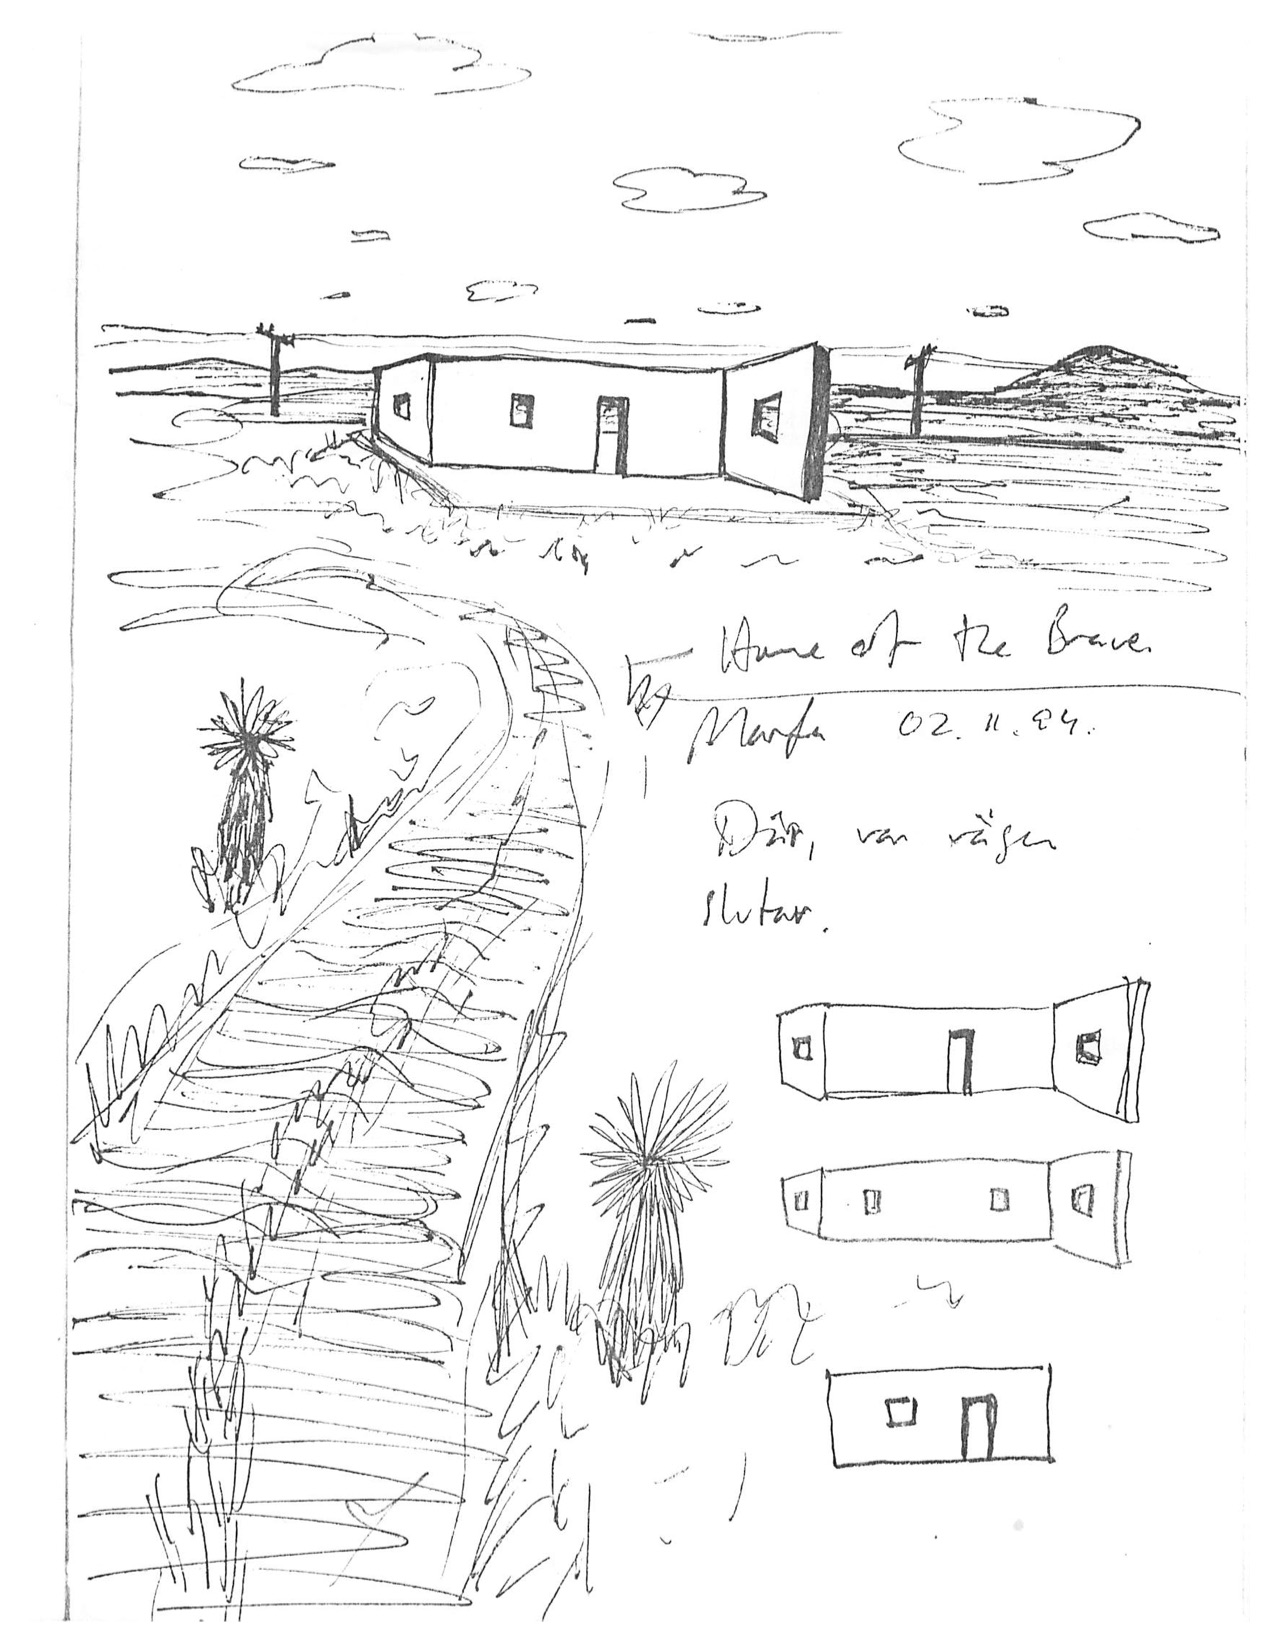 Home of the Brave.
Marfa 02.11.24.
Där, var vägen
slutar.